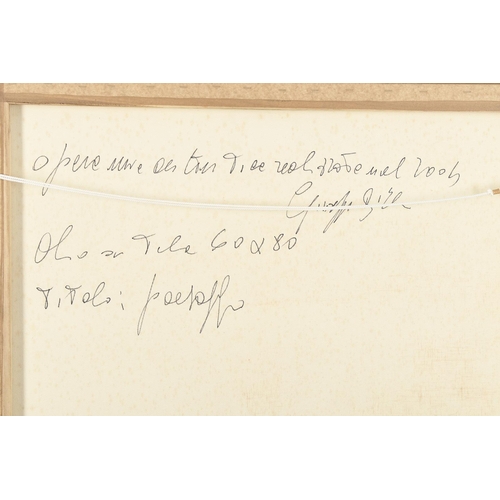 opera mia autentica realizzata nel 2004
Giuseppe
Olio su Tela 60x80
Titolo: paesaggio